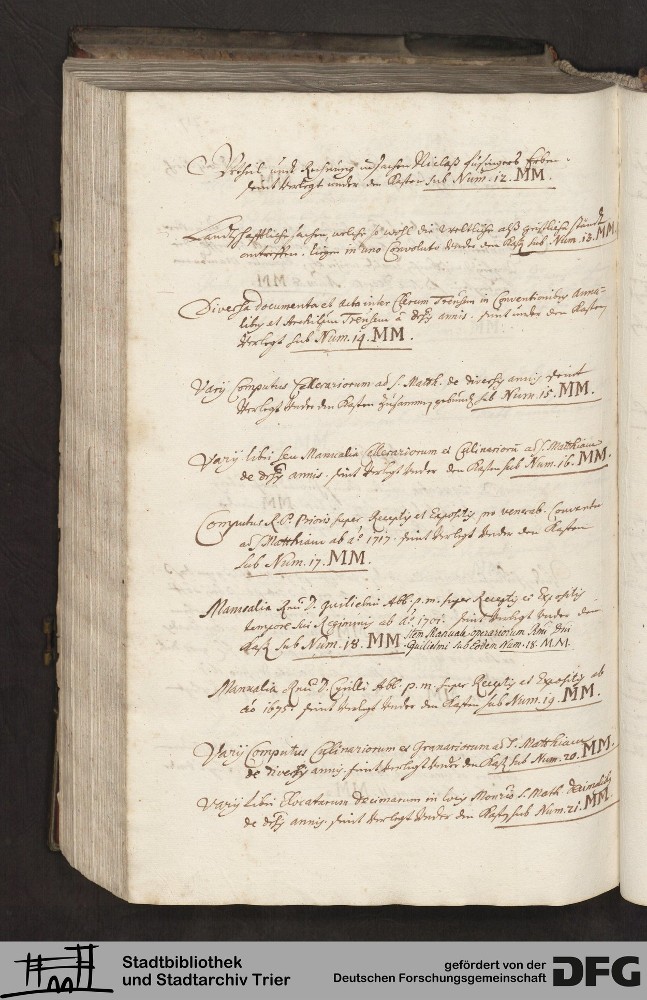 Urtheil und Rechnung in sachen Niclaß Erben
seint verlegt under den Kasten sub Num. 12. MM.
Landschafftliche sachen, welche so wohl die weltliche alß geistliche stände
antreffen, ligen in uno Convoluto under dem Kast sub Num. 13. MM.
Diversa Documenta et Acta inter Clerum Trensem in Conventionibus Annua-
libus et Archiepum Trensem à annis. seint under den Kasten
verlegt sub Num. 14. MM.
Varij Computus Cellerariorum ad S. Matth. de diversis annis seint
verlegt under den Kasten zusammen gebund sub Num. 15. MM.
Varij libri seu Manualia Cellerariorum et Culinariorum ad S. Matthiam
de annis. seint verlegt under den Kasten sub Num. 16. MM.
Computus R. P. Prioris super Receptis et Expositis pro venerab. Conventu
ad S. Matthiam ab aº 1717. seint verlegt under den Kasten
sub Num. 17. MM.
Manualia Rmi D. Guilielmi Abb. p. m. super Receptis et Expositis
tempore sui Regiminis ab aº 1701. seint verlegt under dem
Kast sub Num. 18. MM. Item Manuale operariorum Rmi Dni
Guilielmi sub eodem Num. 18. MM.
Manualia Rmi D. Cyrilli Abb. p. m. super Receptis et Expositis ab
aº 1675. seint verlegt under den Kasten sub Num. 19. MM.
Varij Computus Culinariorum et Granariorum ad S. Matthiam
de diversis annis. seint verlegt under den Kast sub Num. 20. MM.
Varij libri Elocatarum decimarum in locis Monrii S. Math. decimalibus
de annis. seint verlegt under den Kasten sub Num. 21. MM.
Stadtbibliothek
und Stadtarchiv Trier
gefördert von der
Deutschen Forschungsgemeinschaft
DFG